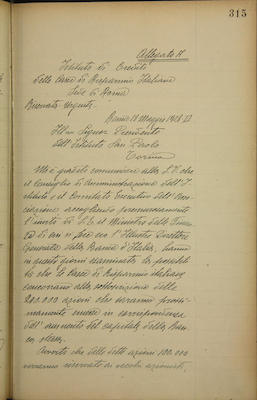 315
Allegato A
Istituto di Credito
delle Casse di Risparmio Italiane
Sede di Roma
Riservata Urgente.
Roma 18 Maggio 1928
Ill.mo Signor Presidente
dell'Istituto San Paolo
Torino
Mi è grato comunicare alla S.V. che
il Consiglio di Amministrazione dell'I-
stituto e il Comitato Esecutivo dell'Asso-
ciazione accogliendo premurosamente
l'invito di S.E. il Ministro delle Finan-
ze di cui si fece eco l'Illustre Direttore
Generale della Banca d'Italia, hanno
in questi giorni esaminato la possibili-
tà che le Casse di Risparmio italiane
concorrano alla sottoscrizione delle
200.000 azioni che saranno prossi-
mamente emesse in corrispondenza
dell'aumento del capitale della Ban-
ca stessa.
Avverto che delle dette azioni 100.000
verranno riservate ai vecchi azionisti,